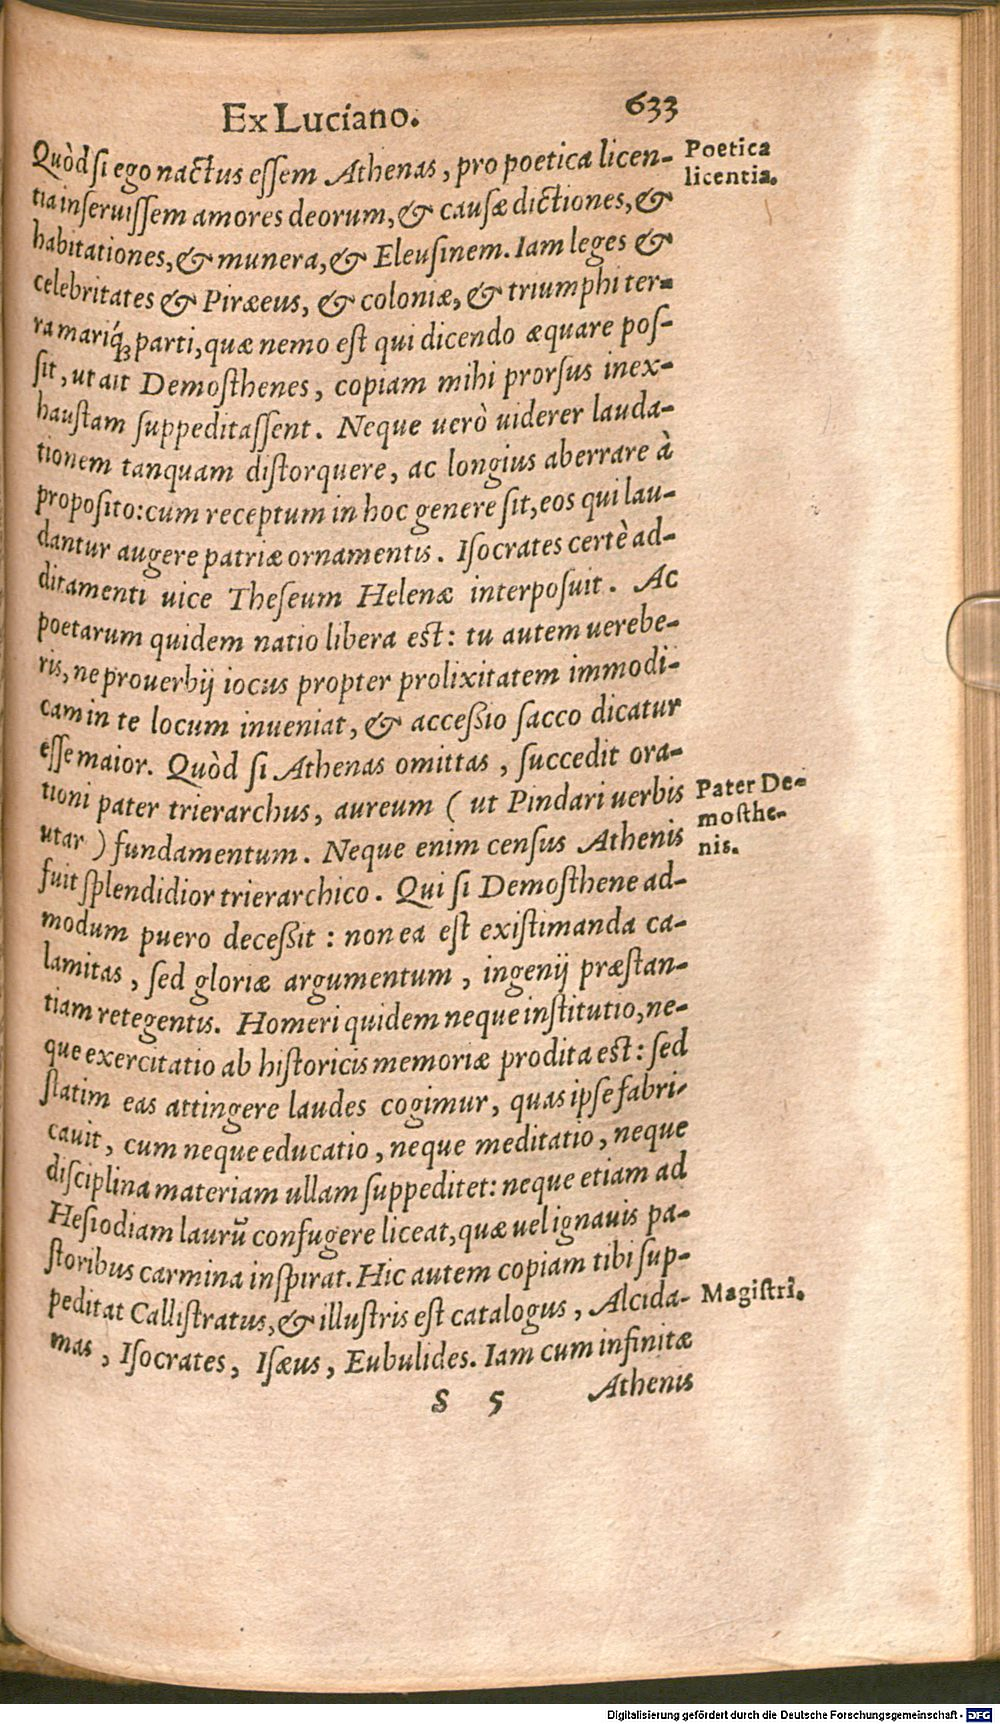 Ex Luciano. 633
Quòd si ego nactus essem Athenas, pro poetica licen-
Poetica
licentia.
tia inseruissem amores deorum, & causæ dictiones, &
habitationes, & munera, & Eleusinem. Iam leges &
celebritates & Piræeus, & coloniæ, & triumphi ter-
ra mariq́; parti, quæ nemo est qui dicendo æquare pos-
sit, ut ait Demosthenes, copiam mihi prorsus inex-
haustam suppeditassent. Neque uerò uiderer lauda-
tionem tanquam distorquere, ac longius aberrare à
proposito: cum receptum in hoc genere sit, eos qui lau-
dantur augere patriæ ornamentis. Isocrates certè ad-
ditamenti uice Theseum Helenæ interposuit. Ac
poetarum quidem natio libera est: tu autem uerebe-
ris, ne prouerbij iocus propter prolixitatem immodi-
cam in te locum inueniat, & acceßio sacco dicatur
esse maior. Quòd si Athenas omittas, succedit ora-
tioni pater trierarchus, aureum ( ut Pindari uerbis
Pater De-
mosthe-
nis.
utar ) fundamentum. Neque enim census Athenis
fuit splendidior trierarchico. Qui si Demosthene ad-
modum puero deceßit : non ea est existimanda ca-
lamitas, sed gloriæ argumentum, ingenij præstan-
tiam retegentis. Homeri quidem neque institutio, ne-
que exercitatio ab historicis memoriæ prodita est: sed
statim eas attingere laudes cogimur, quas ipse fabri-
cauit, cum neque educatio, neque meditatio, neque
disciplina materiam ullam suppeditet: neque etiam ad
Hesiodiam laurū confugere liceat, quæ uel ignauis pa-
storibus carmina inspirat. Hic autem copiam tibi sup-
peditat Callistratus, & illustris est catalogus, Alcida-
Magistri.
mas, Isocrates, Isæus, Eubulides. Iam cum infinitæ
S 5 Athenis
Digitalisierung gefördert durch die Deutsche Forschungsgemeinschaft - DFG